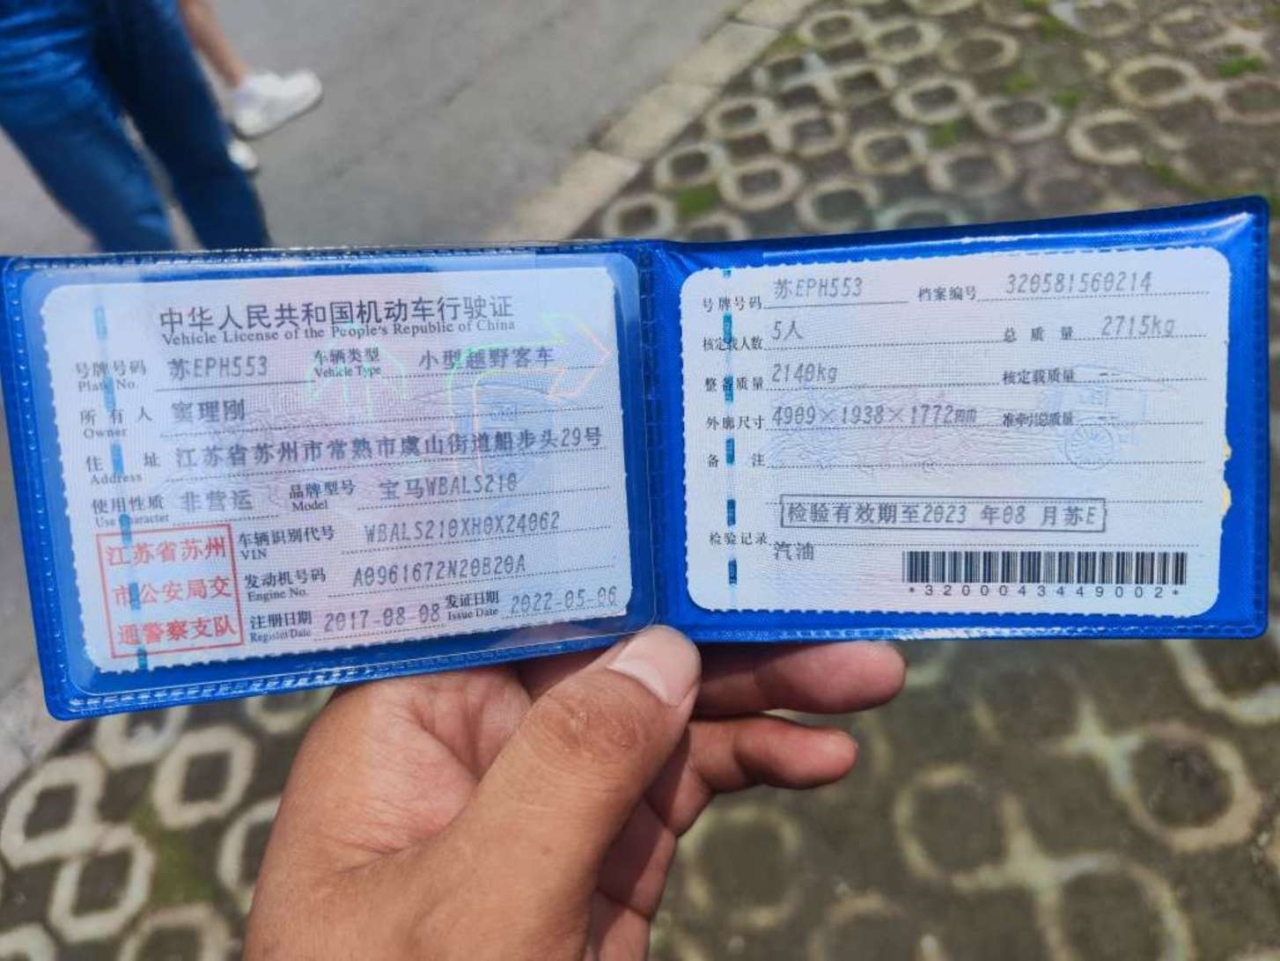 中华人民共和国机动车行驶证
Vehicle License of the People's Republic of China
号牌号码 苏EPH553 车辆类型 小型越野客车
Plate No. Vehicle Type
所有人 窦理刚
Owner
住址 江苏省苏州市常熟市虞山街道船步头29号
Address
使用性质 非营运 品牌型号 宝马WBALS210
Use Character Model
江苏省苏州
市公安局交
通警察支队
车辆识别代号 WBALS210XH0X24062
VIN
发动机号码 A0961672N20B20A
Engine No.
注册日期 2017-08-08 发证日期 2022-05-06
Register Date Issue Date
号牌号码 苏EPH553 档案编号 320581560214
核定载人数 5人 总质量 2715kg
整备质量 2140kg 核定载质量 --
外廓尺寸 4909×1938×1772mm 准牵引总质量 --
备注
检验有效期至2023 年08 月苏E
检验记录
汽油
*3200043449002*